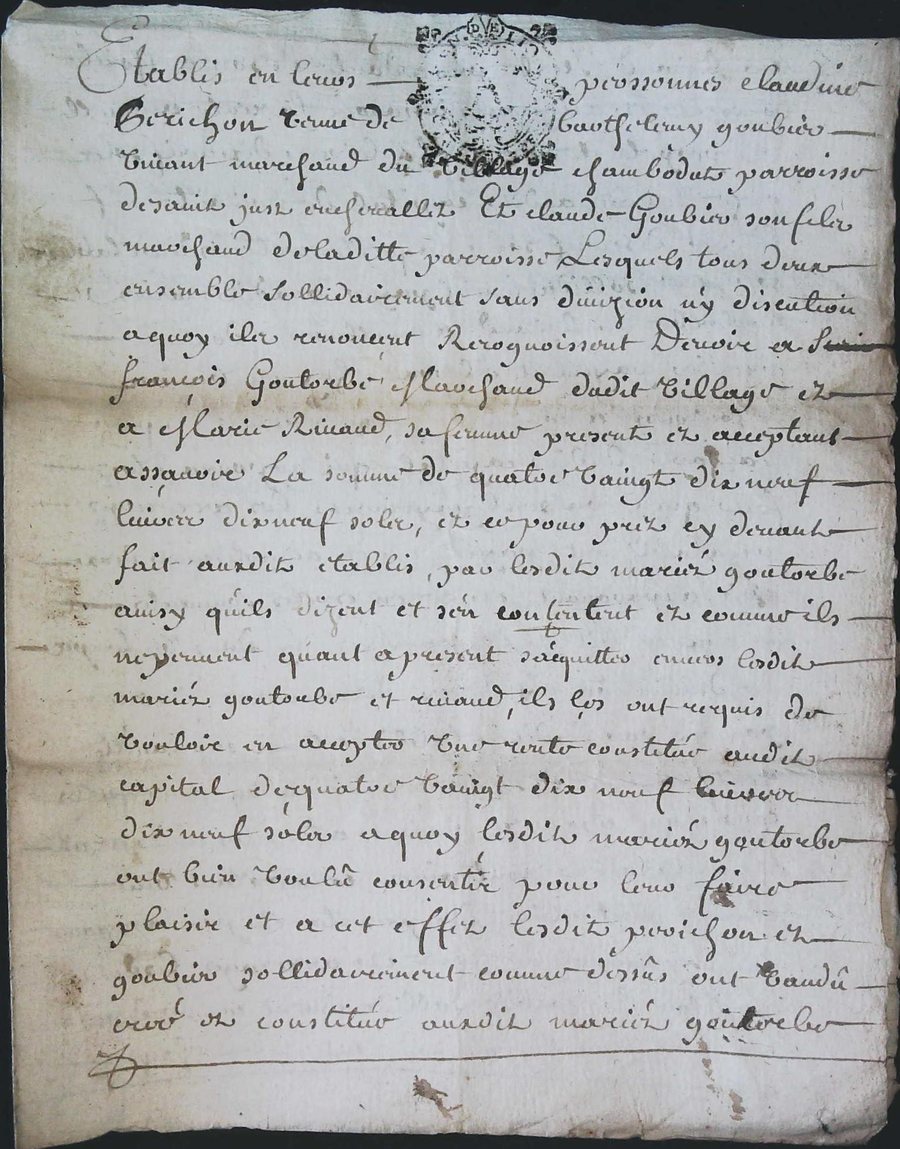 Etablis en leurs personnes claudine
Perichon veuve de barthelemy goubier
vivant marchand du village chambodut parroisse
de saint just en chevallet Et claude Goubier son filz
marchand de la ditte parroisse Lesquels tous deux
ensemble sollidairement sans divizion ny discution
a quoy ils renoncent Recognoissent Devoir a Sieur
françois Goutorbe Marchand dudit village et
a Marie Rinaud, sa femme present et acceptant
assavoir La somme de quatre vaingt dix neuf
luivres dix neuf solz, et ce pour prêz cy devant
fait ausdit etablis, par lesdit mariéz goutorbe
ainsy qu'ils dizent et s'en contentent et comme ils
ne peuvent quant a present s'acquitter envers lesdit
mariéz goutorbe et rinaud, ils les ont requis de
vouloir en accepter une rente constitué audit
capital de quatre vaingt dix neuf luivres
dix neuf solz a quoy lesdit mariéz goutorbe
ont bien voulû consentir pour leur faire
plaisir et a cet effet lesdit perichon et
goubier sollidairement comme dessûs ont vandû
creé et constitué ausdit mariéz goutorbe